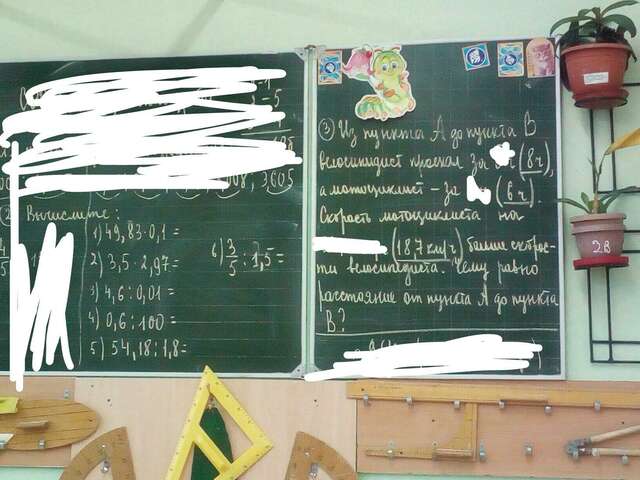 008, 3,605
2) Вычислите:
1) 49,83·0,1=
2) 3,5·2,97=
3) 4,6:0,01=
4) 0,6:100=
5) 54,18:1,8=
6) 3/5 : 1,5=
③ Из пункта А до пункта В
велосипедист проехал за (8 ч),
а мотоциклист – за (6 ч).
Скорость мотоциклиста на
(18,7 км/ч) больше скорос-
ти велосипедиста. Чему равно
расстояние от пункта А до пункта
В?
2В